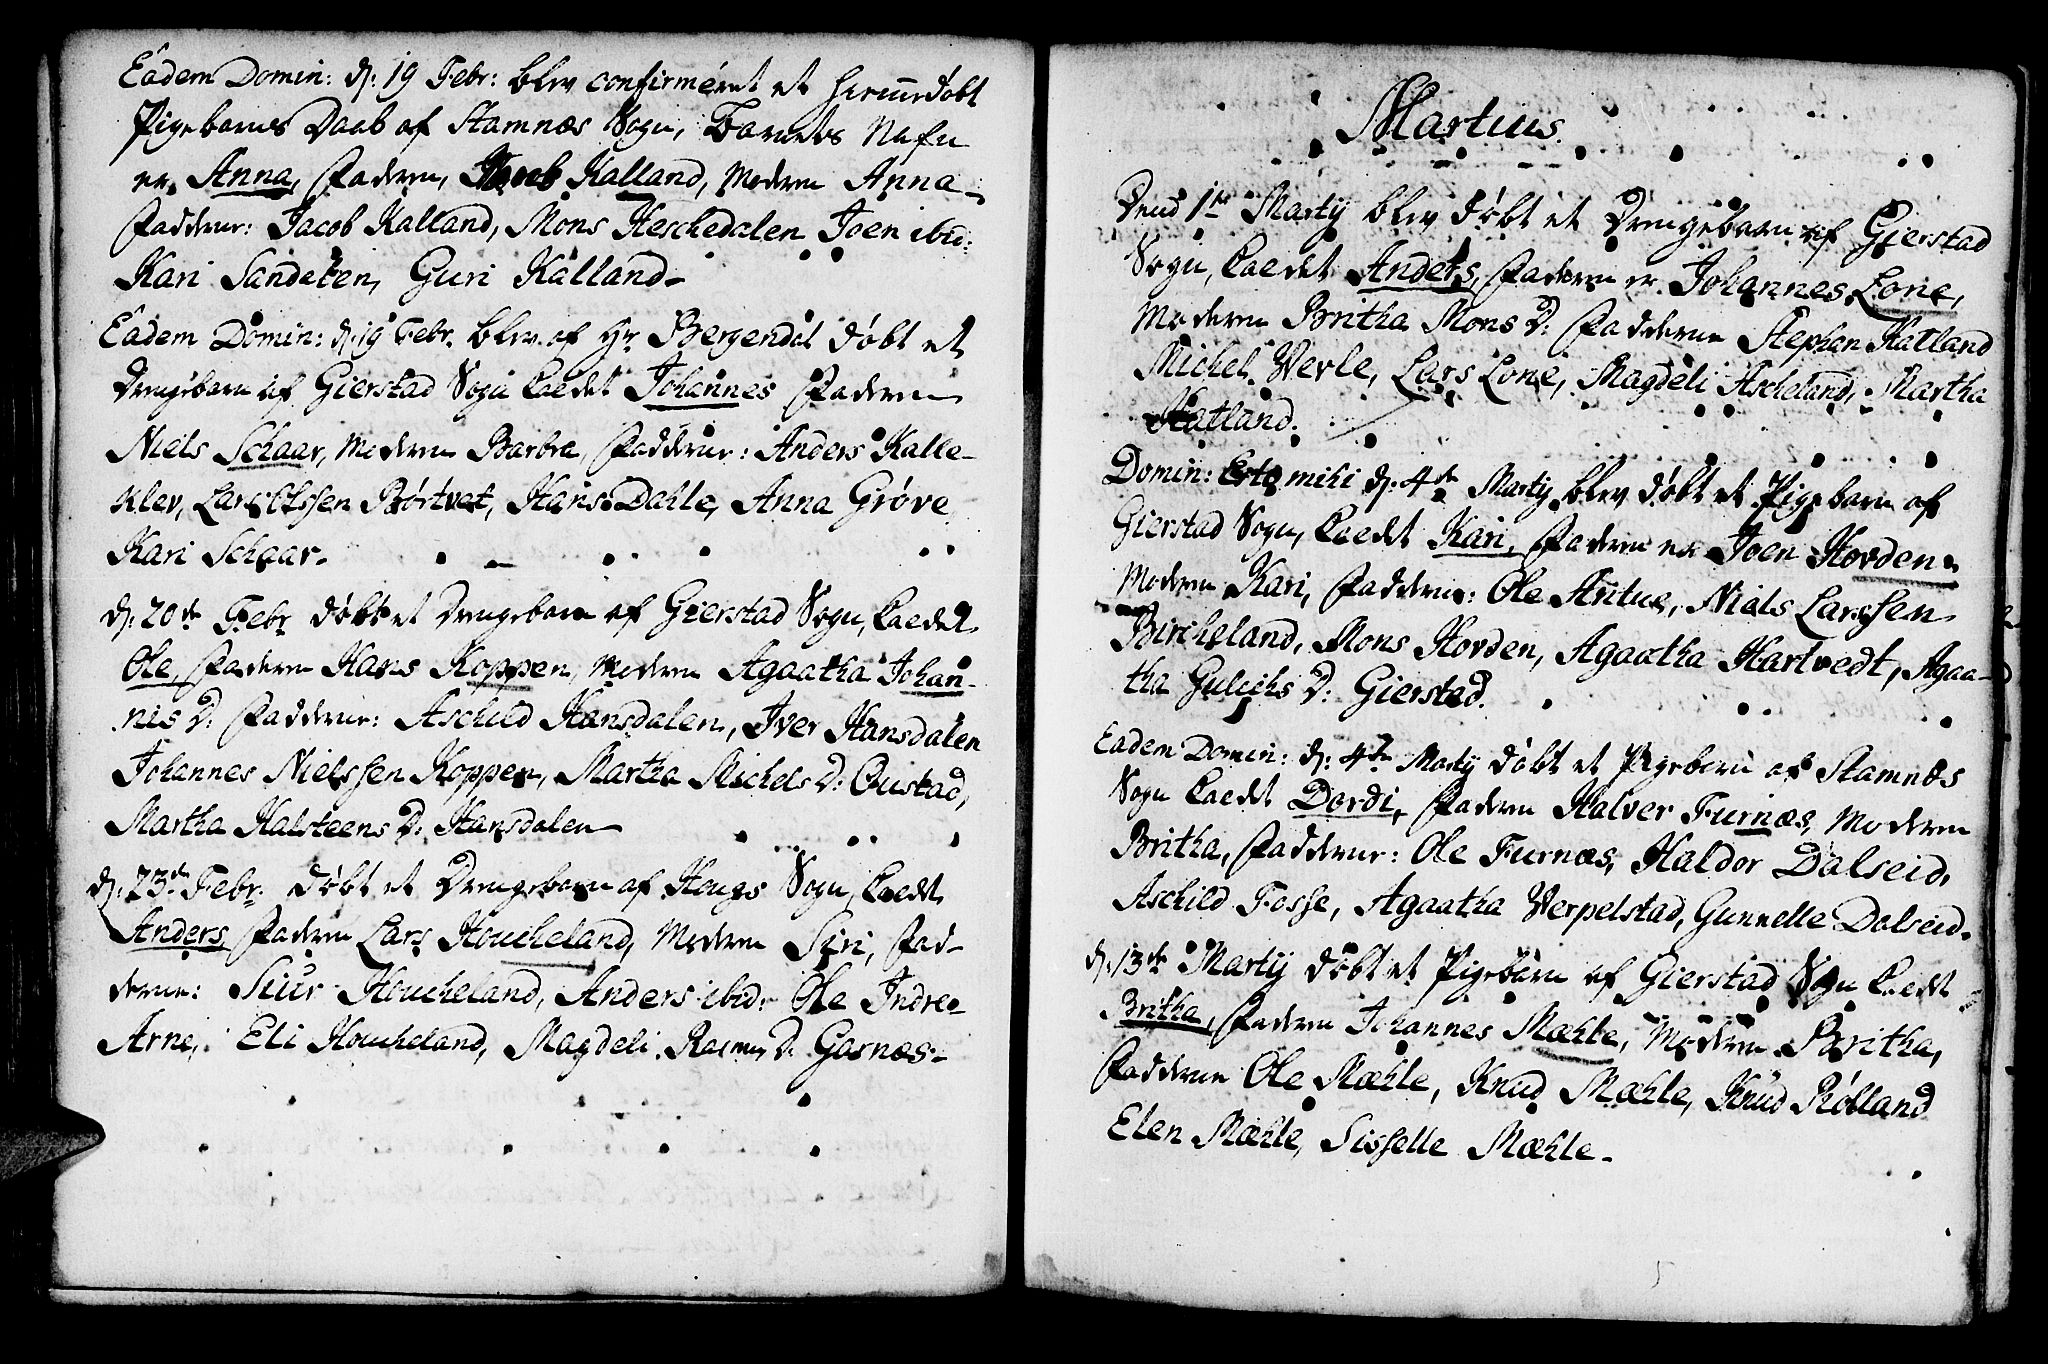 Eadem Domin: d: 19 Febr: blev confirmeret et hiemmedøbt
Pigebarns Daab af Stamnæs Sogn, Barnets Nafn
er Anna, Faderen, Jacob Kalland, Moderen Anna
Fadderne: Jacob Kalland, Mons Heschedalen Joen ibid:
Kari Sandeten, Guri Kalland
Eadem Domin: d: 19 Febr. blev af Hr Bergendal døbt et
Drengebarn af Gierstad Sogn kaedet Johannes Faderen
Niels Schaar, Moderen Barbra, Fadderne: Anders Kalle-
klev, Lars Børtvet, Hans Dahle, Anna Grøve
Kari Schaar.
d: 20de Febr døbt et Drengebarn af Gierstad Sogn, kaedet
Ole, Faderen Hans Koppen, Moderen Agaatha Johan-
nis D: Fadderne: Aschild Hansdalen, Iver Hansdalen
Johannes Nielssen Koppen, Martha Michels D: Qvistad,
Martha Halsteens D: Hansdalen
d: 23de Febr. døbt et Drengebarn af Hougs Sogn, kaedt
Anders, Faderen Lars Houcheland, Moderen Siri, Fad-
derne: Siur Houcheland, Anders ibid: Ole Indre
Arne, Eli Houcheland, Magdeli Rasmus D. Garnæs
Martius.
Dend 1te Martij blev døbt et Drengebarn af Gierstad
Sogn, kaedet Anders, Faderen er Johannes Lone,
Moderen Britha Mons D: Fadderne Stephen Hatland
Michel Verle, Lars Lone, Magdeli Ascheland, Martha
Hatland.
Domin: Esto mihi d: 4de Martij blev døbt et Pigebarn af
Gierstad Sogn, kaedet Kari, Faderen er Joen Hovden
Moderen Kari, Fadderne: Ole Antue, Niels Larssen
Bircheland, Mons Hovden, Agaatha Hartvedt, Agaa-
tha Gulichs D: Gierstad.
Eadem Domin: d: 4de Martij døbt et Pigebarn af Stamnæs
Sogn kaedet Dordi, Faderen Halver Furnæs, Moderen
Britha, Fadderne: Ole Furnæs, Haldor Dalseid,
Aschild Fosse, Agaatha Verpelstad, Gunnelle Dalseid.
d: 13de Martij døbt et Pigebarn af Gierstad Sogn kaedt
Britha, Faderen Johannes Mæhle, Moderen Britha,
Fadderne Ole Mæhle, Knud Mæhle, Knud Rølland
Elen Mæhle, Sisselle Mæhle